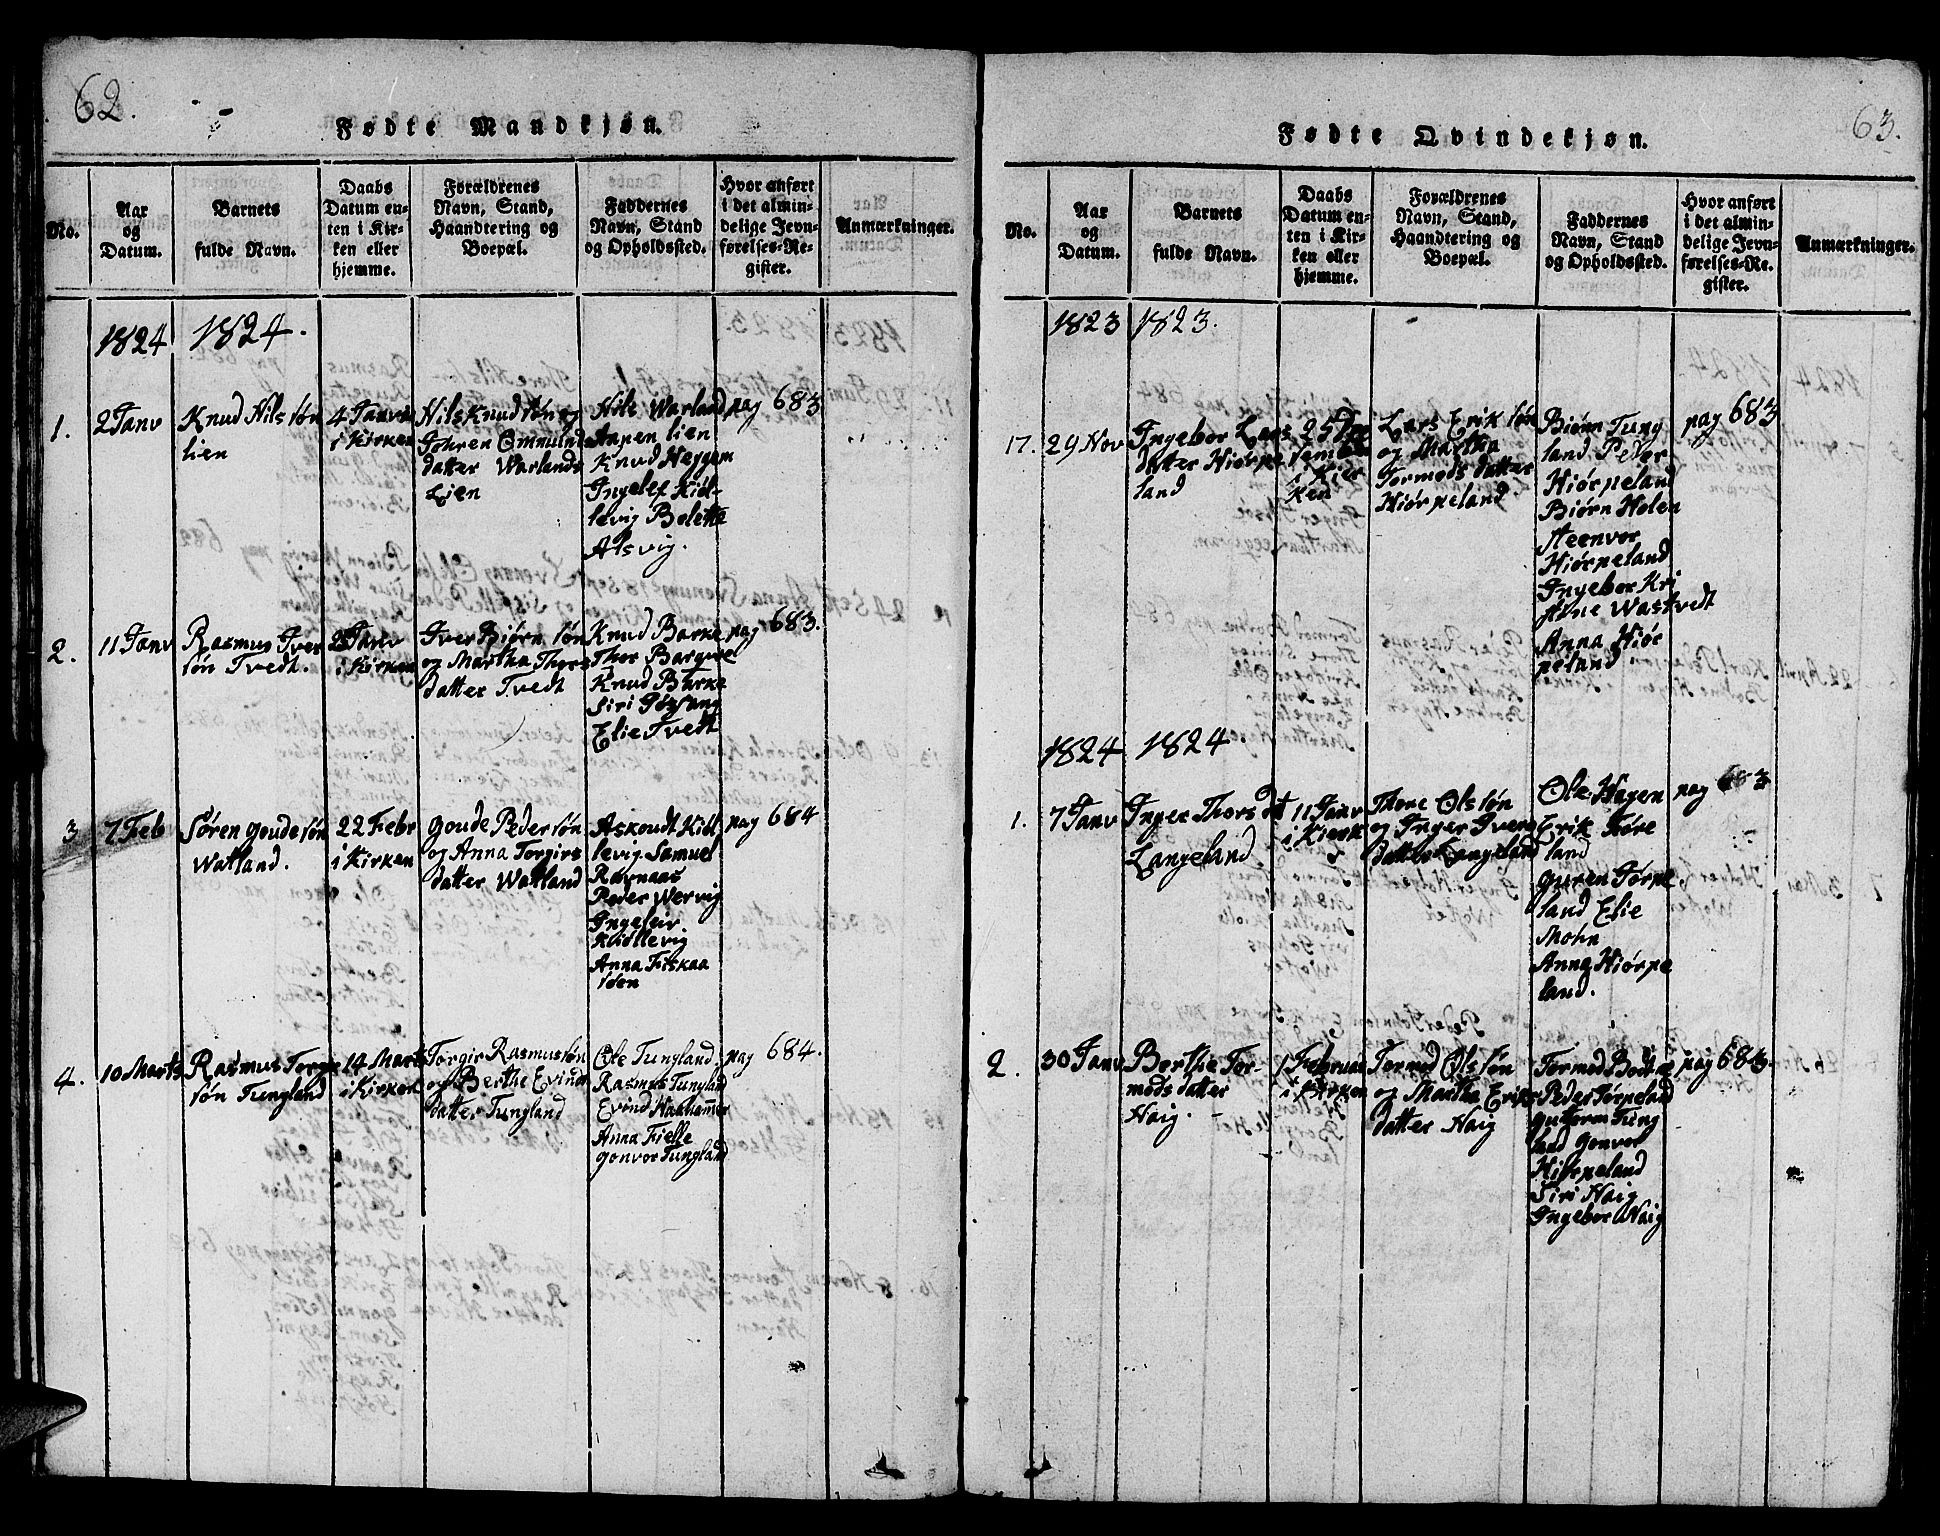 62.
Fødte Mandkjøn.
No.
Aar
og
Datum.
Barnets
fulde Navn.
Daabs
Datum en-
ten i Kir-
ken eller
hjemme.
Forældrenes
Navn, Stand,
Haandtering og
Boepæl.
Faddernes
Navn, Stand
og Opholdssted.
Hvor anført
i det almin-
delige Jevn-
førelses-Re-
gister.
Anmærkninger.
1824
1824.
1.
2 Janv
Knud Nils søn
Lien
4 Janv
i Kirken
Nils Knud søn og
Johren Ommunds
datter Warlands
Lien
Nils Warland
Aapen Lien
Knud Heggem
Ingelef Kiøl-
levig Belette
Alsvig.
pag 683
2.
11 Janv
Rasmus Iver
søn Tvedt.
Janv
i Kirken
Iver Biørn søn
og Martha Thors
datter Tvedt
Knud Barke
Thor Bargvel
Knud Barke
Siri
Elie Tvedt
pag 683.
3
7 Feb
Søren Goude søn
Watland.
22 Febr
i Kirken
Goude Peder søn
og Anna Torgirs
datter Watland
Askoudt Kiøl
levig Samuel
Ravnaas
Peder Wervig
Ingeleir
Kiøllevig
Anna Fiskaa
tøen
pag 684
4.
10 Marts
Rasmus Torge
søn Tungland
14 Marts
i Kirken
Torgir Rasmus søn
og Berthe Evinds
datter Tungland
Ole Tungland
Rasmus Tungland
Evind Haahammer
Anna Fielle
Gonvor Tungland
pag 684.
63.
Fødte Qvindekjøn.
No.
Aar
og
Datum.
Barnets
fulde Navn.
Daabs
Datum en-
ten i Kir-
ken eller
hjemme.
Forældrenes
Navn, Stand,
Haandtering og
Boepæl.
Faddernes
Navn, Stand
og Opholdssted.
Hvor anført
i det almin-
delige Jevn-
førelses-Re-
gister.
Anmærkninger.
1823
1823.
17.
29 Nov
Ingebor Lars
datter Hiørpe
land
25
i Kier
ken
Lars Erik søn
og Martha
Tormods datter
Hiørpeland
Biørn Tung
land Peder
Hiørpeland
Biørn Holen
Steenvor
Hiørpeland
Ingebor Kri
stine Wastvedt
Anna Hiør
peland
pag 683
1824
1824.
1.
7 Janv
Inger Thors dt
Langeland
11 Janv
i Kierk
Thore Ols søn
og Inger Ivers
datter Langeland
Ole Hagen
Erik Tøre
land
Guren Jørpe
land Elie
Mohn
Anna Hiørpe
land.
pag 683
2.
30 Janv
Berthe Tor-
mods datter
Haig.
1 Februar
i Kirken
Tormod Ols søn
og Martha Eriks
datter Haig
Tormod Botne
Peder Jørpeland
Gutorm Tung
land Gonvor
Hiørpeland
Siri Haig
Ingebor Haig
pag 683.